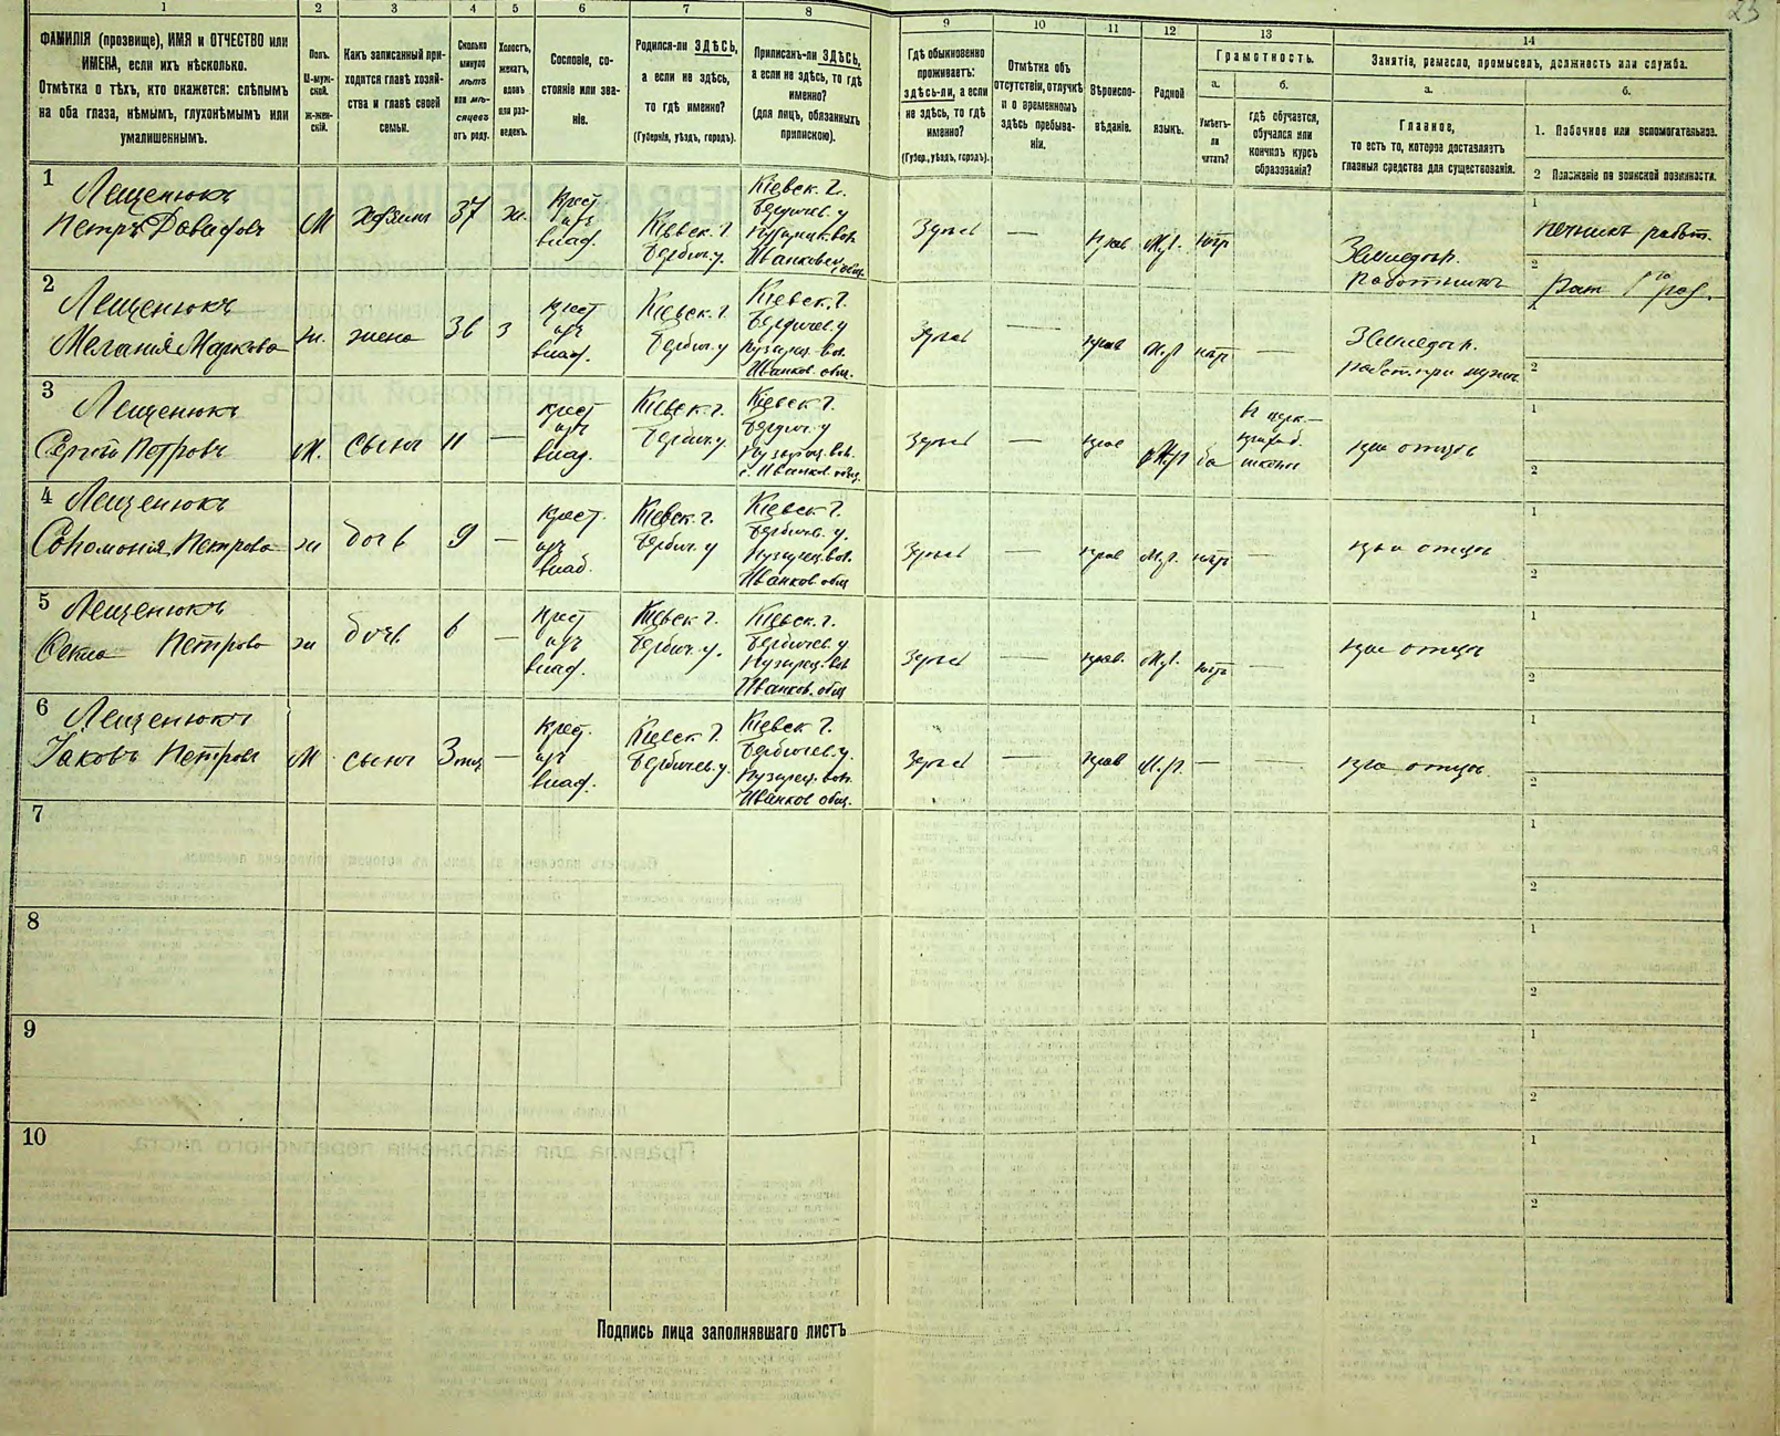 23
1 2 3 4 5 6 7 8 9 10 11 12 13 14
ФАМИЛІЯ (прозвище), ИМЯ и ОТЧЕСТВО или
ИМЕНА, если ихъ нѣсколько.
Отмѣтка о тѣхъ, кто окажется: слѣпымъ
на оба глаза, нѣмымъ, глухонѣмымъ или
умалишеннымъ.
Полъ.
М-муж-
ской.
ж-жен-
скій.
Какъ записанный при-
ходится главѣ хозяй-
ства и главѣ своей
семьи.
Сколько
минуло
лѣтъ
или мѣ-
сяцевъ
отъ роду.
Холостъ,
женатъ,
вдовъ
или раз-
веденъ.
Сословіе, со-
стояніе или зва-
ніе.
Родился-ли ЗДѢСЬ,
а если не здѣсь,
то гдѣ именно?
(Губернія, уѣздъ, городъ).
Приписанъ-ли ЗДѢСЬ,
а если не здѣсь, то гдѣ
именно?
(для лицъ, обязанныхъ
припискою).
Гдѣ обыкновенно
проживаетъ:
здѣсь-ли, а если
не здѣсь, то гдѣ
именно?
(Губер., уѣздъ, городъ).
Отмѣтка объ
отсутствіи, отлучкѣ
и о временномъ
здѣсь пребыва-
ніи.
Вѣроиспо-
вѣданіе.
Родной
языкъ.
Грамотность.
а.
Умѣетъ-
ли
читать?
б.
гдѣ обучается,
обучался или
кончилъ курсъ
образованія?
Занятіе, ремесло, промыселъ, должность или служба.
а.
Главное,
то есть то, которое доставляетъ
главныя средства для существованія.
б.
1. Побочное или вспомогательное.
2 Положеніе по воинской повинности.
1
Лещенюкъ
Петръ Давидовъ
М
хозяинъ
37
ж.
Крест
изъ
влад.
Кіевск. г.
Бердич. у.
Кіевск. г.
Бердичев. у
Здѣсь
—
прав
М.р.
нѣтъ
Земледѣл.
работникъ
1
2
2
Лещенюкъ
Меланія Маркова
ж.
жена
36
з
Крест
изъ
влад.
Кіевск. г.
Бердич. у
Кіевск. г.
Бердичев. у
Пузырец. вол.
Иванков. общ.
Здѣсь
—
прав
М.р
нѣтъ
—
Земледѣл.
работ. при мужѣ
1
2
3
Лещенюкъ
Сергѣй Петровъ
М.
сынъ
11
—
крест
изъ
влад.
Кіевск. г.
Бердич. у
Кіевск. г.
Бердич. у
Пузырец. вол.
с. Иванков. общ.
Здѣсь
—
прав
М.р
да
школы
при отцѣ
1
2
4
Лещенюкъ
Соломонія Петрова
ж
дочь
9
—
Крест.
изъ
влад.
Кіевск. г.
Бердич. у
Кіевск. г.
Бердичев. у.
Пузырец. вол.
Иванков. общ
Здѣсь
—
прав
М.р.
нѣтъ
—
при отцѣ
1
2
5
Лещенюкъ
Фекла Петрова
ж
дочь
6
—
Крест
изъ
влад.
Кіевск. г.
Бердич. у.
Кіевск. г.
Бердичев. у
Пузырец. вол
Иванков. общ
Здѣсь
—
прав.
М.р.
нѣтъ
—
при отцѣ
1
2
6
Лещенюкъ
Іаковъ Петровъ
М
сынъ
3 мц
—
Крест.
изъ
влад.
Кіевск. г.
Бердичев. у.
Кіевск. г.
Бердичев. у.
Пузырец. вол.
Иванков общ.
Здѣсь
—
прав
М.р.
—
—
при отцѣ
1
2
7
1
2
8
1
2
9
1
2
10
1
2
Подпись лица заполнявшаго листъ